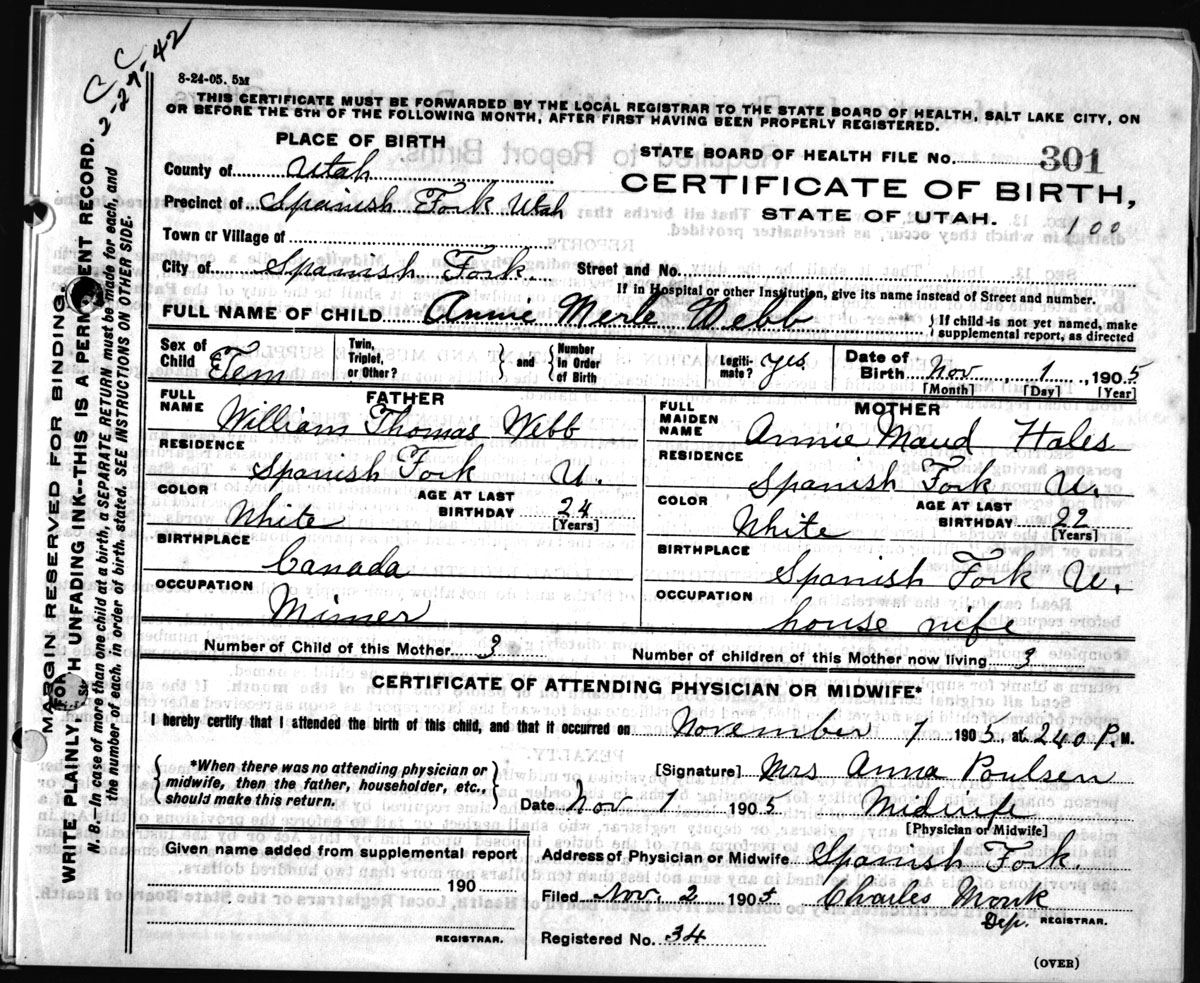 C C
2-27-42
8-24-05. 5M
THIS CERTIFICATE MUST BE FORWARDED BY THE LOCAL REGISTRAR TO THE STATE BOARD OF HEALTH, SALT LAKE CITY, ON
OR BEFORE THE 5TH OF THE FOLLOWING MONTH, AFTER FIRST HAVING BEEN PROPERLY REGISTERED.
PLACE OF BIRTH
STATE BOARD OF HEALTH FILE NO. 301
County of Utah
CERTIFICATE OF BIRTH,
Precinct of Spanish Fork Utah
STATE OF UTAH. 100
Town or Village of
City of Spanish Fork Street and No.
If in Hospital or other Institution, give its name instead of Street and number.
FULL NAME OF CHILD Annie Merle Webb } If child is not yet named, make supplemental report, as directed
Sex of Child Fem Twin, Triplet, or Other? } and { Number In Order of Birth Legiti- mate? yes Date of Birth Nov 1, 1905
[Month] [Day] [Year]
FATHER
FULL NAME William Thomas Webb
RESIDENCE
Spanish Fork U.
COLOR White AGE AT LAST BIRTHDAY 24
[Years]
BIRTHPLACE
Canada
OCCUPATION
Minner
MOTHER
FULL MAIDEN NAME Annie Maud Hales
RESIDENCE
Spanish Fork U.
COLOR White AGE AT LAST BIRTHDAY 22
[Years]
BIRTHPLACE
Spanish Fork U.
OCCUPATION
house wife
Number of Child of this Mother 3 Number of children of this Mother now living 3
CERTIFICATE OF ATTENDING PHYSICIAN OR MIDWIFE*
I hereby certify that I attended the birth of this child, and that it occurred on November 1 1905, at 240 P. M.
{ *When there was no attending physician or midwife, then the father, householder, etc., should make this return. }
[Signature] Mrs Anna Poulsen
Date Nov 1 1905 Midwife
[Physician or Midwife]
Given name added from supplemental report
190
REGISTRAR.
Address of Physician or Midwife Spanish Fork
Filed Nov. 2 1905 Charles Monk
Dep. REGISTRAR.
Registered No. 34
(OVER)
MARGIN RESERVED FOR BINDING.
WRITE PLAINLY, WITH UNFADING INK--THIS IS A PERMANENT RECORD.
N. B.--In case of more than one child at a birth, a SEPARATE RETURN must be made for each, and
the number of each, in order of birth, stated. SEE INSTRUCTIONS ON OTHER SIDE.